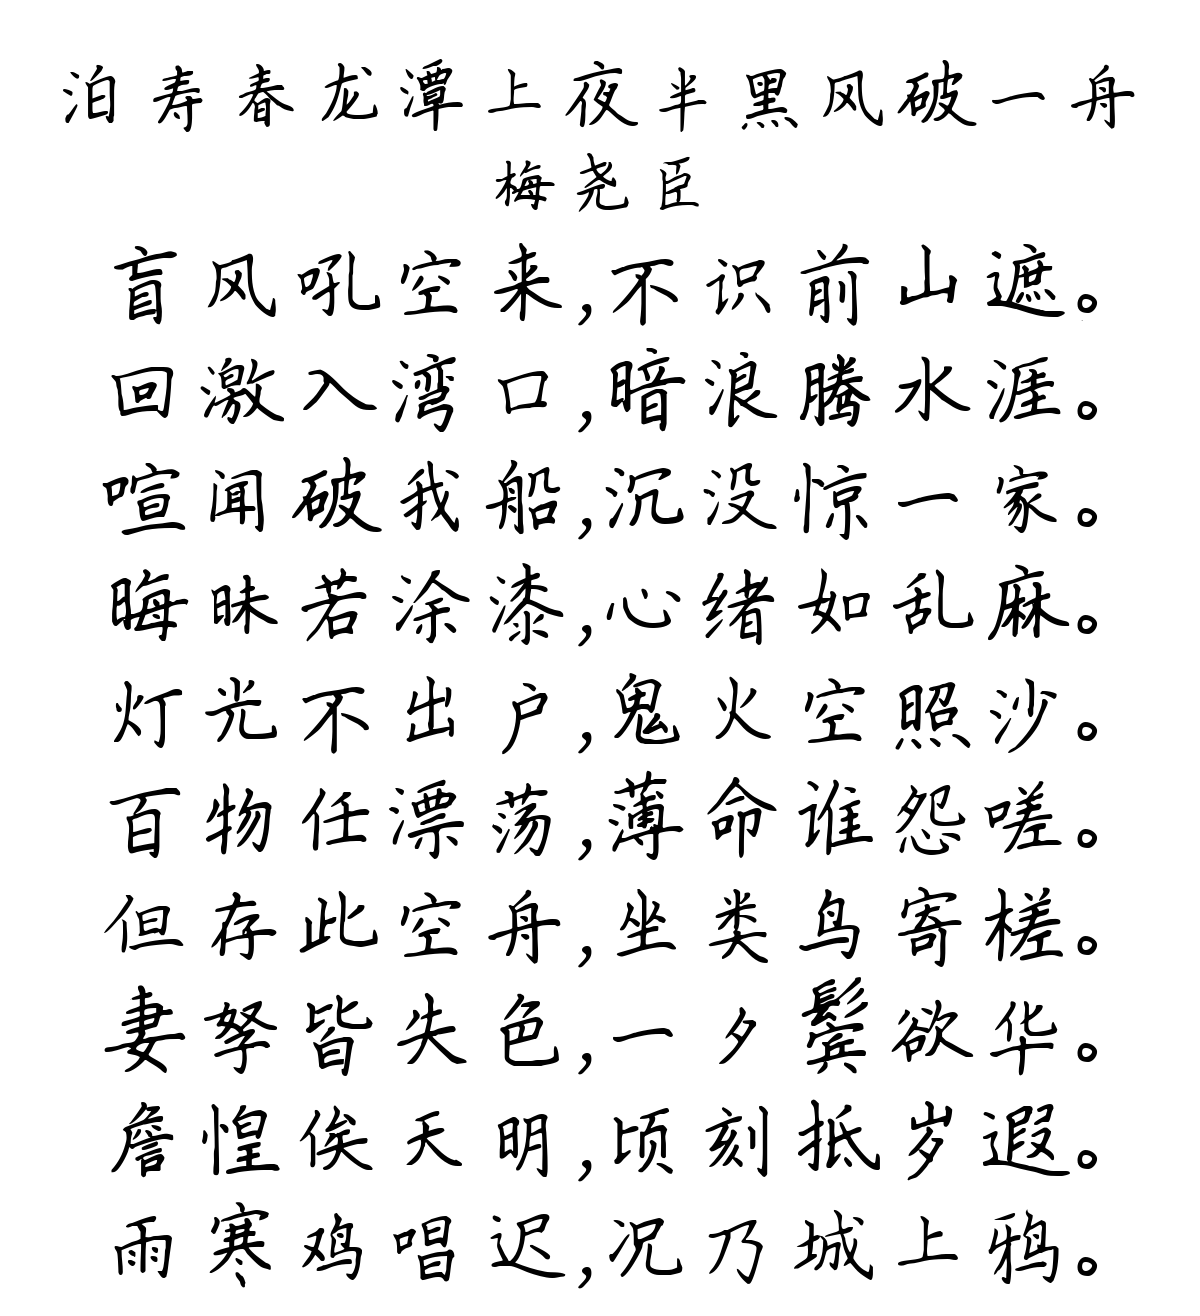 泊寿春龙潭上夜半黑风破一舟
梅尧臣
盲风吼空来,不识前山遮。
回激入湾口,暗浪腾水涯。
喧闻破我船,沉没惊一家。
晦昧若涂漆,心绪如乱麻。
灯光不出户,鬼火空照沙。
百物任漂荡,薄命谁怨嗟。
但存此空舟,坐类鸟寄槎。
妻孥皆失色,一夕鬓欲华。
詹惶俟天明,顷刻抵岁遐。
雨寒鸡唱迟,况乃城上鸦。